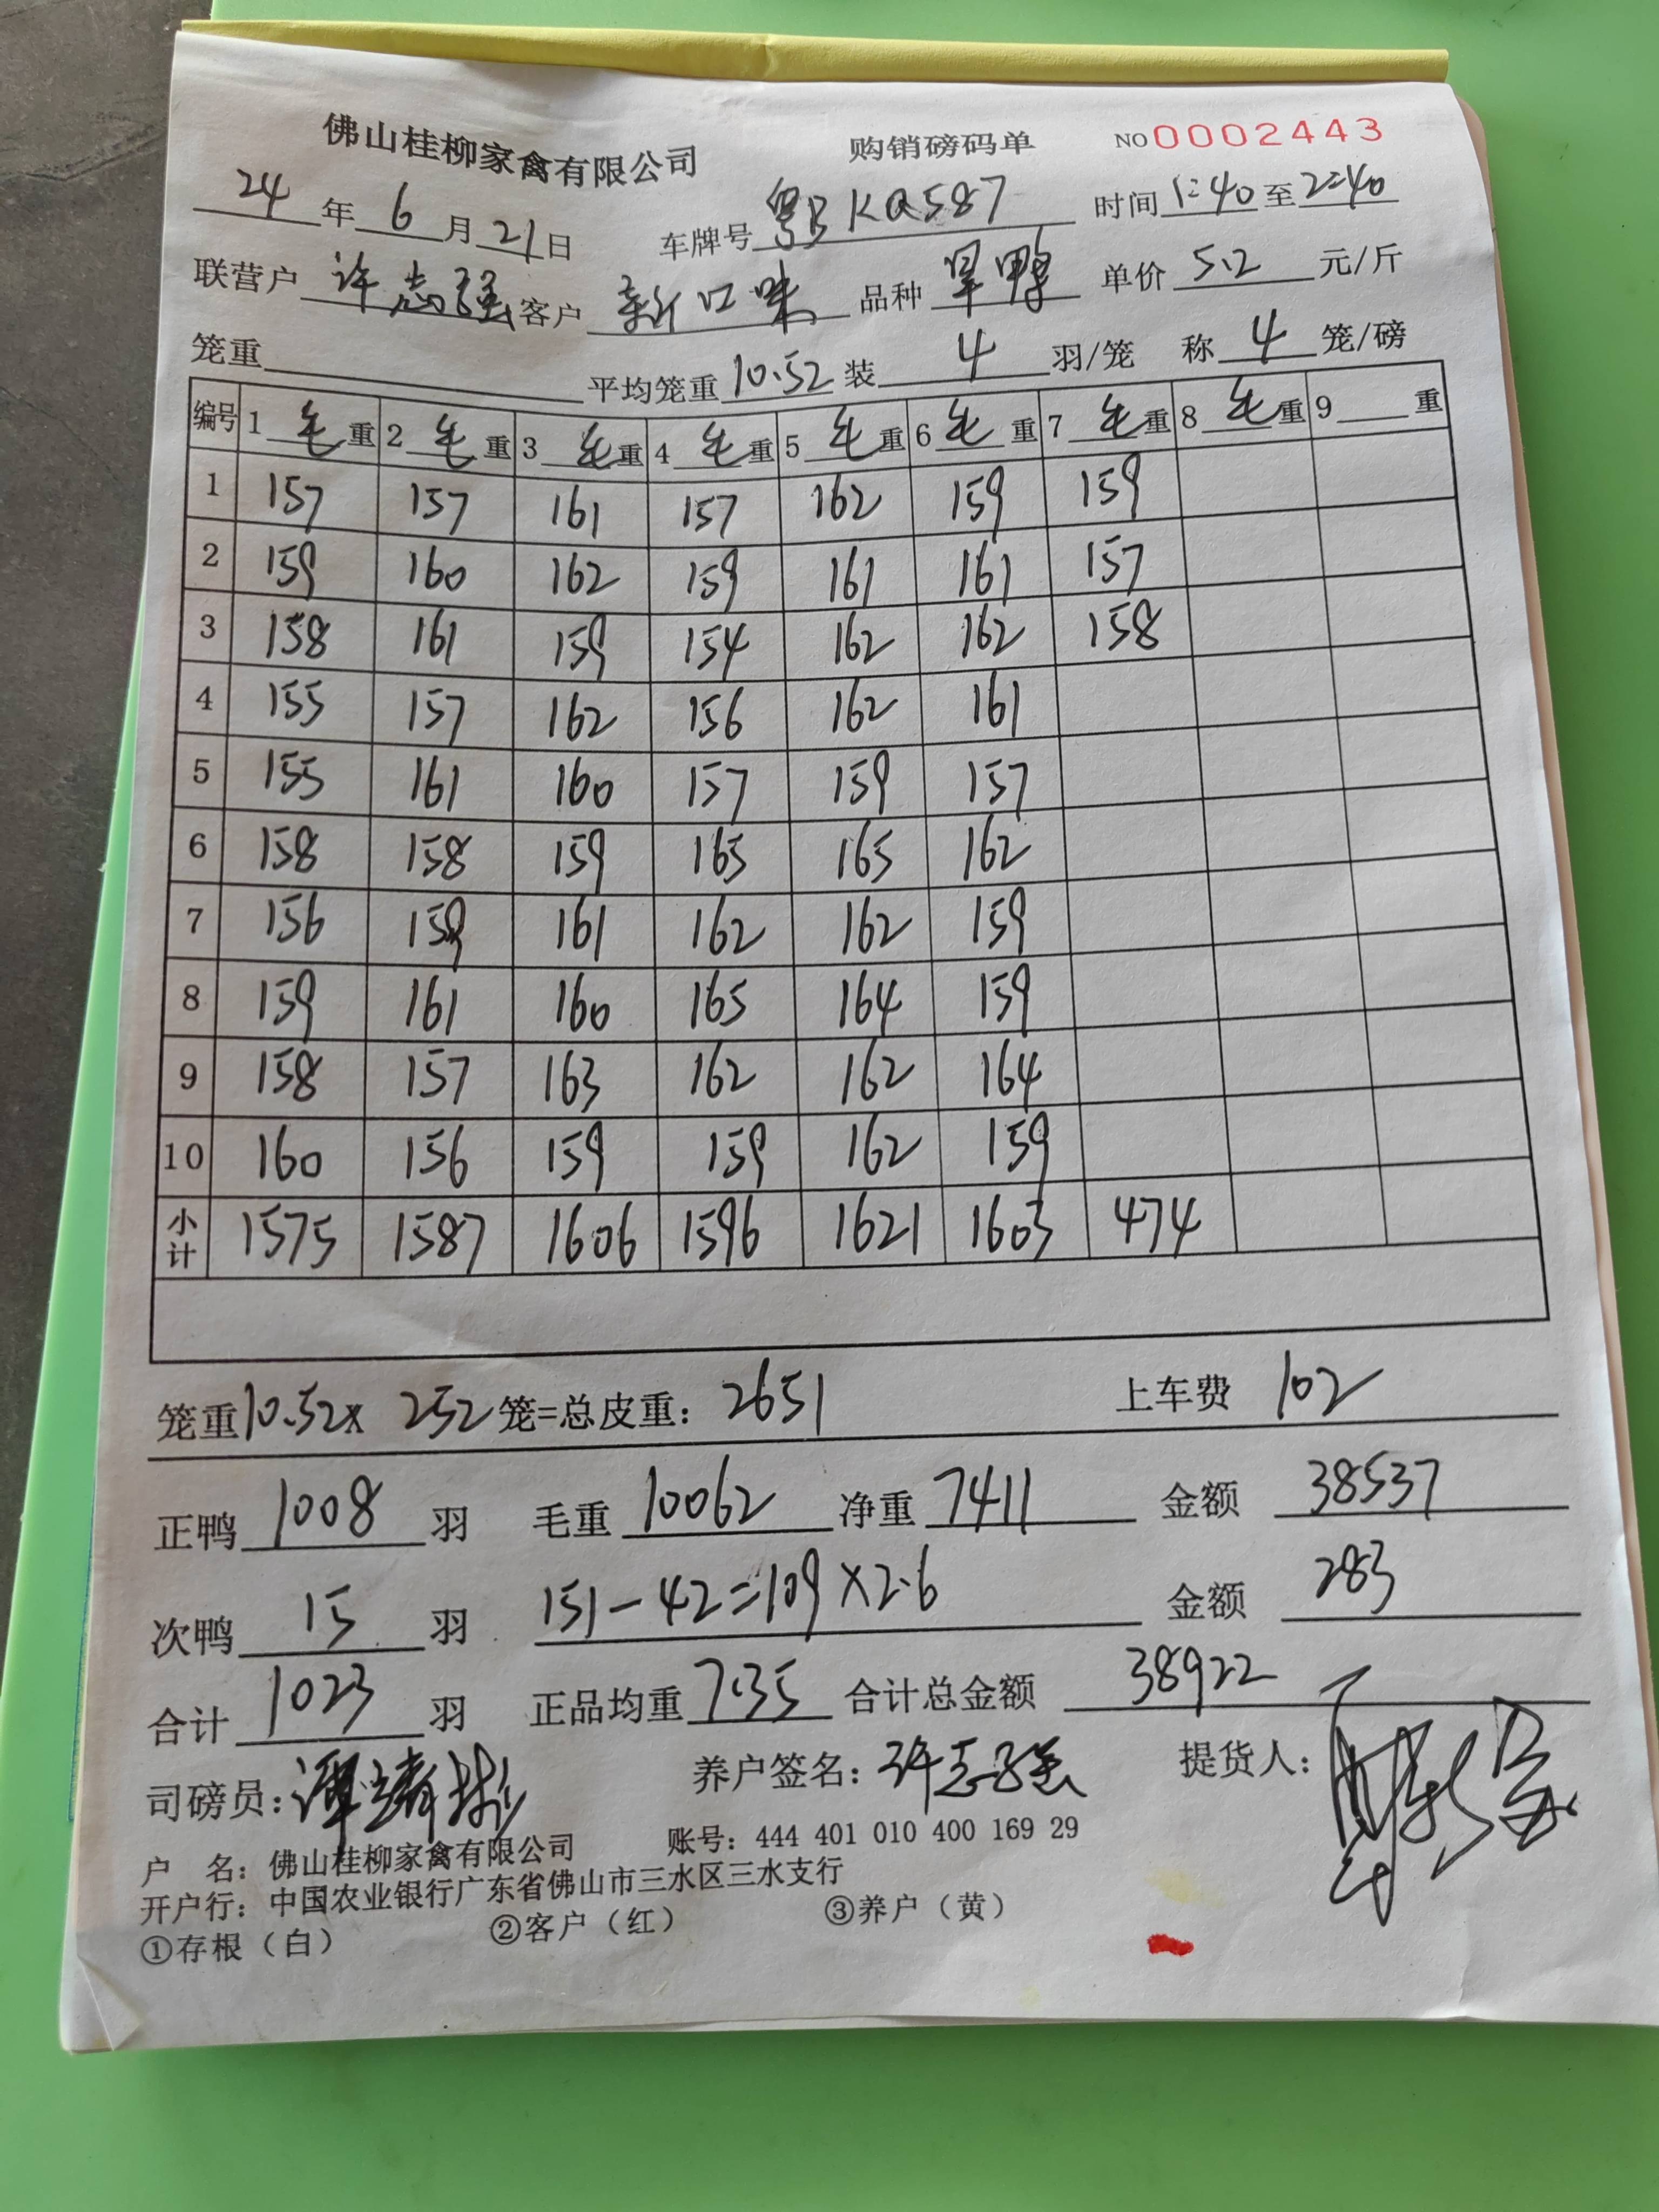 佛山桂柳家禽有限公司 购销磅码单 NO 0002443
24年6月21日 车牌号 粤BKQ587 时间 1:40至2:40
联营户 许志强 客户 新口味 品种 旱鸭 单价 5.2 元/斤
笼重 平均笼重 10.52 装 4 羽/笼 称 4 笼/磅
编号 1毛重 2毛重 3毛重 4毛重 5毛重 6毛重 7毛重 8毛重 9重
1 157 157 161 157 162 159 159
2 159 160 162 159 161 161 157
3 158 161 159 154 162 162 158
4 155 157 162 156 162 161
5 155 161 160 157 159 157
6 158 158 159 165 165 162
7 156 159 161 162 162 159
8 159 161 160 165 164 159
9 158 157 163 162 162 164
10 160 156 159 159 162 159
小计 1575 1587 1606 1596 1621 1603 474
笼重10.52x 252笼=总皮重:2651 上车费 102
正鸭 1008 羽 毛重 10062 净重 7411 金额 38537
次鸭 15 羽 151-42=109×2.6 金额 283
合计 1023 羽 正品均重 7.35 合计总金额 38922
司磅员: 养户签名:许志强 提货人:
户 名:佛山桂柳家禽有限公司 账号:444 401 010 400 169 29
开户行:中国农业银行广东省佛山市三水区三水支行
①存根（白） ②客户（红） ③养户（黄）